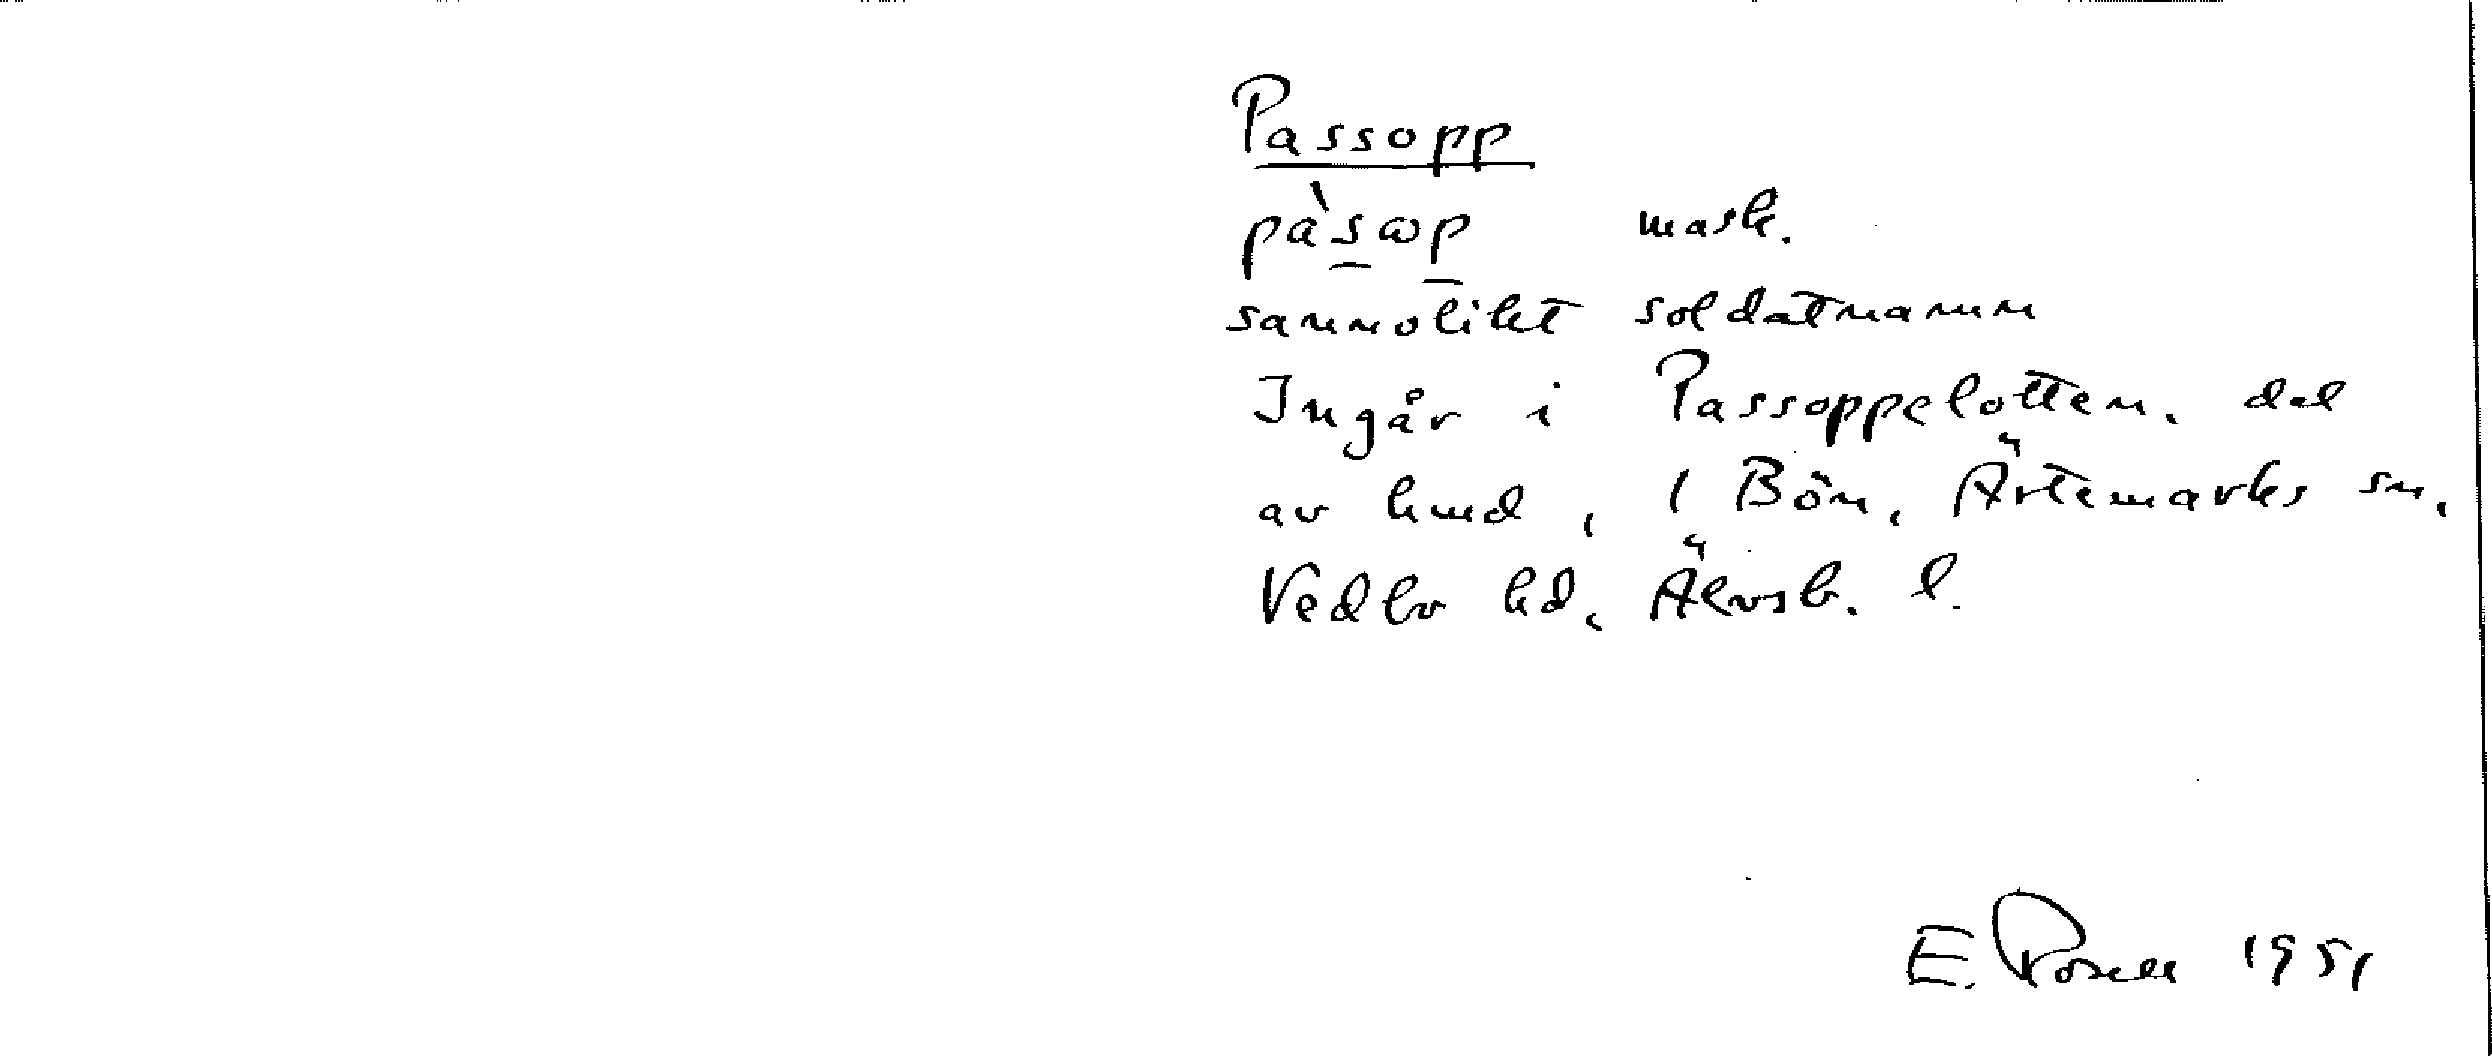 Passopp
pàsωp mask.
sannolikt soldatnamn
Ingår i Passoppelotten. del
av hmd, 1 Bön, Ärtemarks sn,
Vedbo hd, Älvsb. l.
E. Rosell 1951